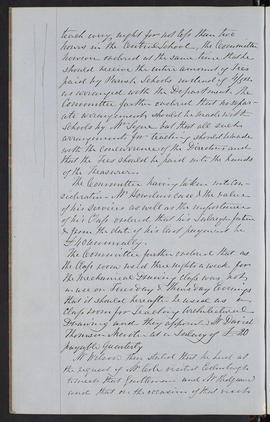 teach every night for not less than two
hours in the Central School, the Committee
however ordered at the same time that he
should receive the entire amount of fees
paid by Parish Schools instead of
as arranged with the Department. The
Committee further ordered that no sepa-
rate arrangements should be made with
Schools by Mr but that all such
arrangements for teaching should be made
with the concurrence of the Directors and
that the Fees should be paid into the hands
of the Treasurer.
The Committee having taken into con-
sideration Mr case & the value
of his services as well as the importance
of his Class ordered that his Salary in future
& from the date of his last payment be
£40 annually.
The Committee further ordered that as
the Class room were three nights a week for
the Mechanical Drawing Class was not
in use on Tuesday & Thursday Evenings
that it should hereafter be used as a
Class room for teaching Architectural
Drawing and they appoint Mr David
Thomson at a Salary of £20
payable quarterly.
Mr Wilson then stated that he had at
the request of Mr Cole visited Edinburgh
to meet that Gentleman and Mr Redgrave
and that on the occasion of that visit